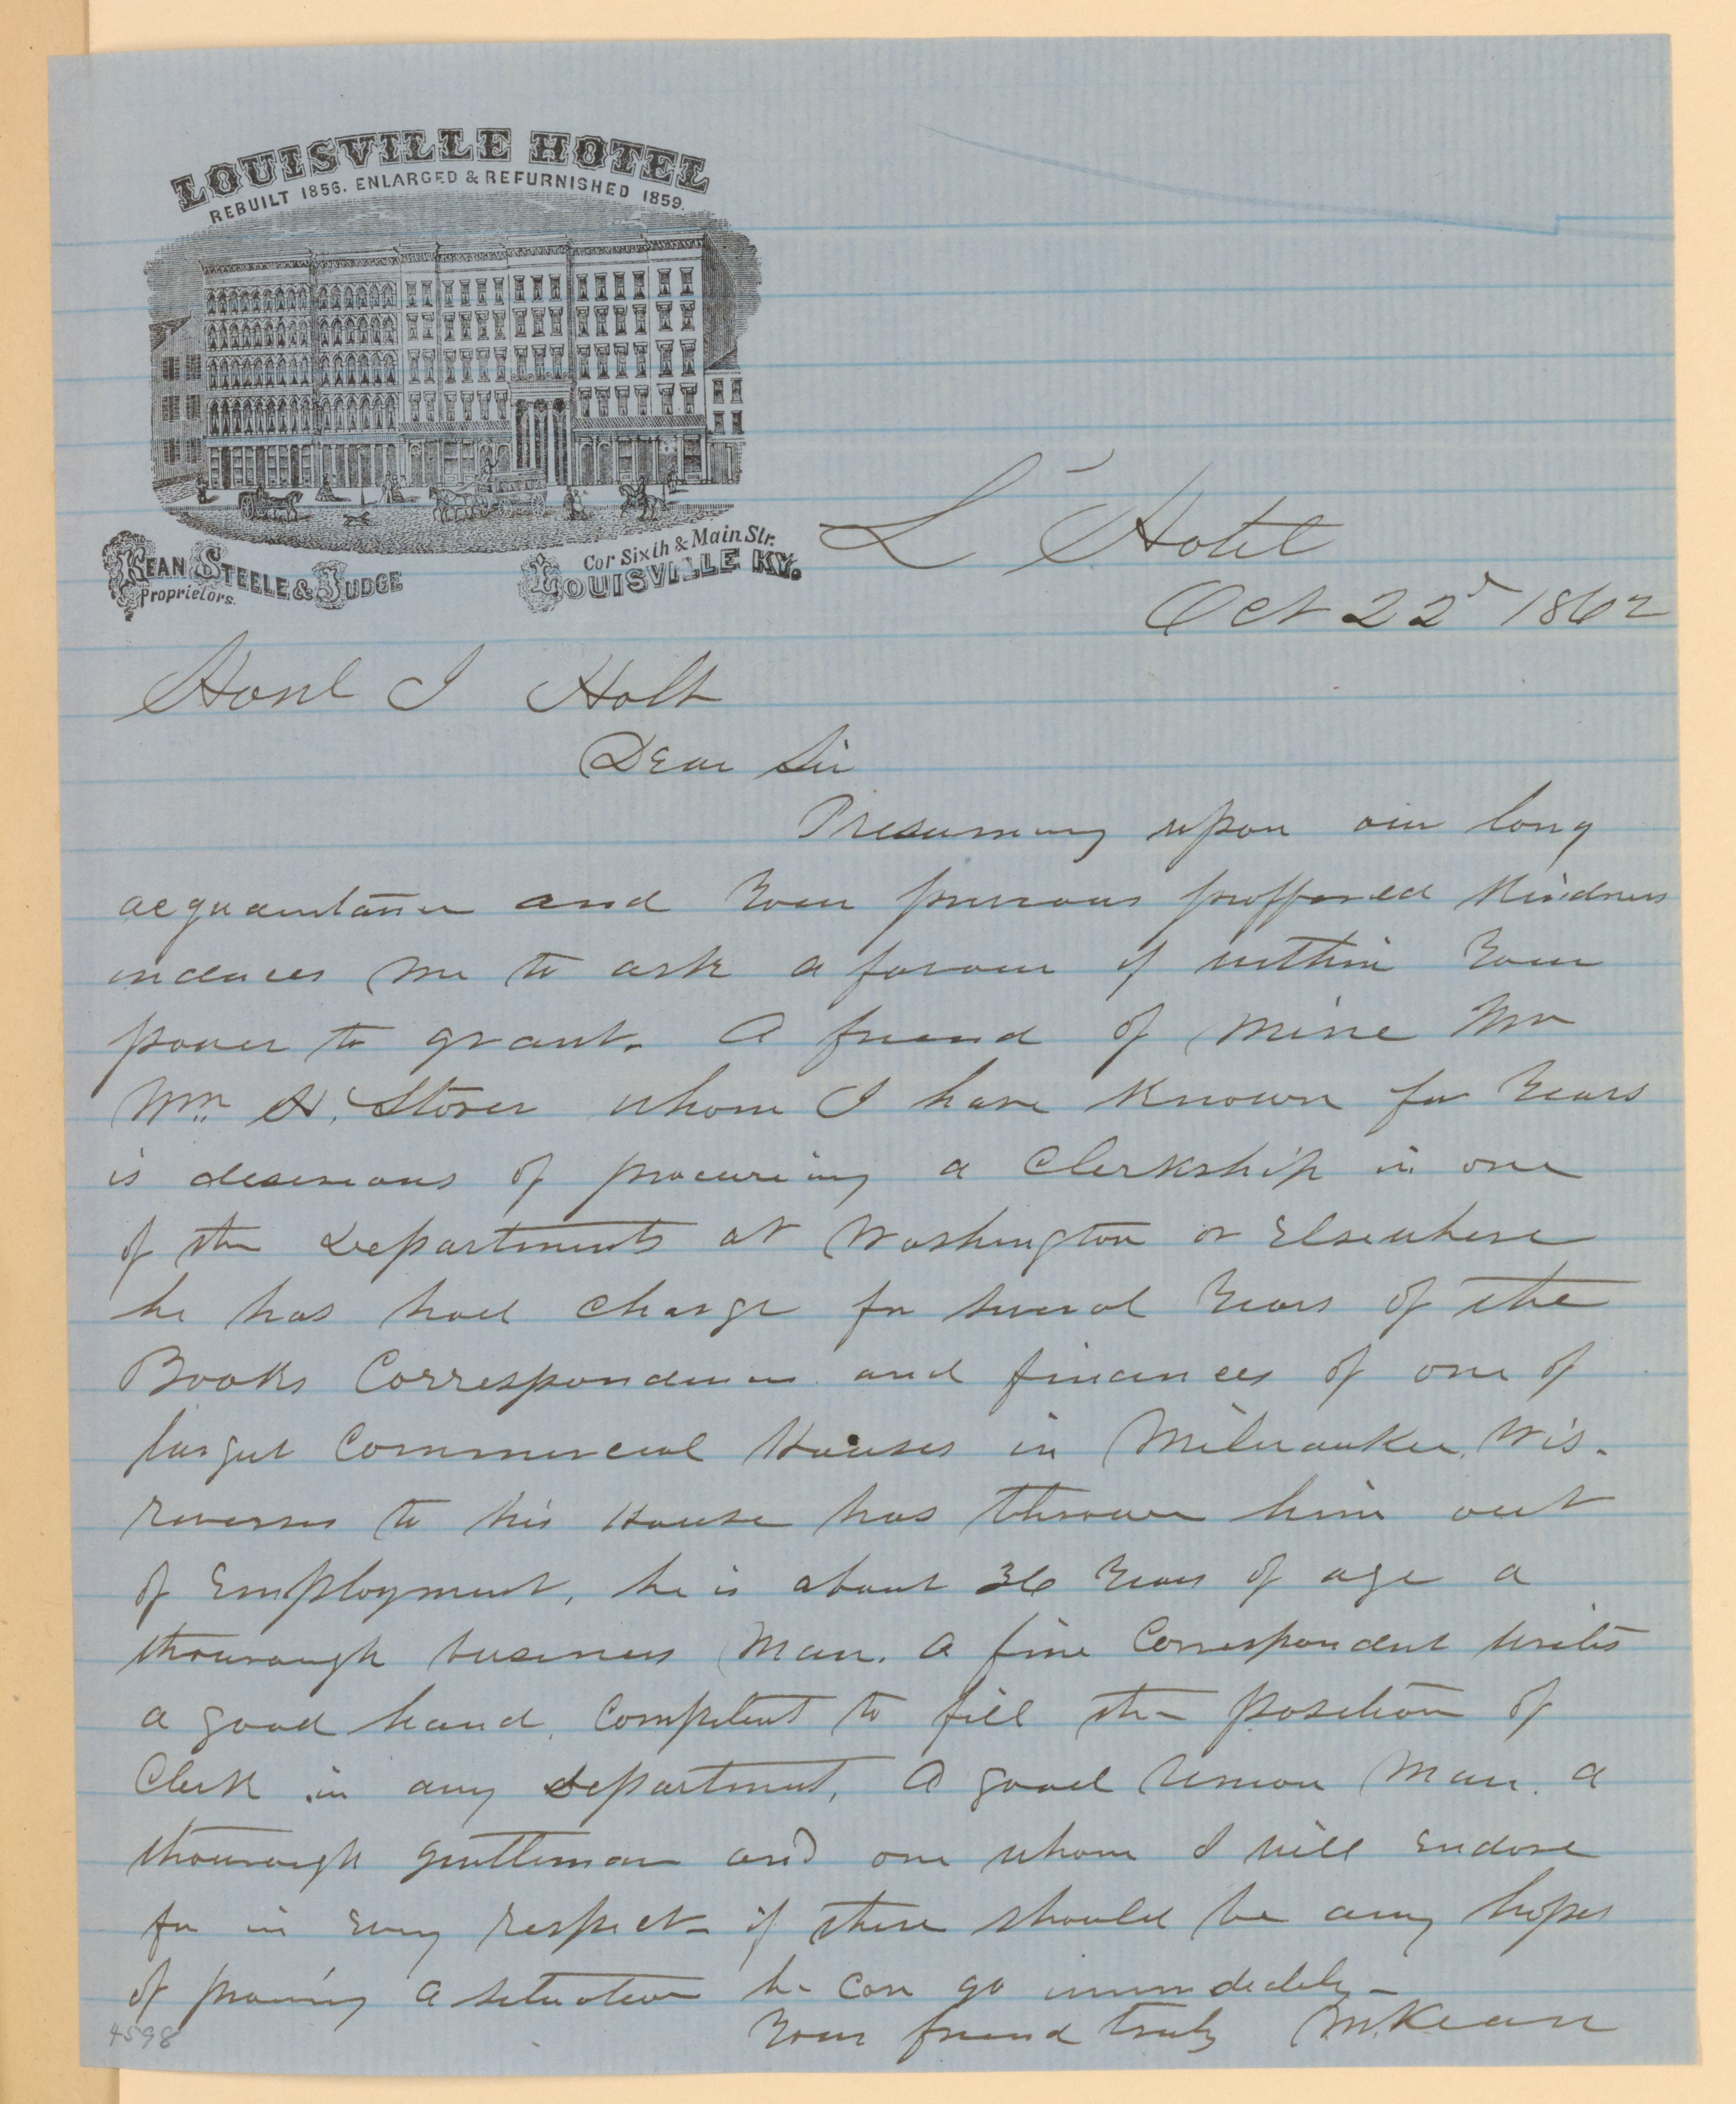 LOUISVILLE HOTEL
REBUILT 1856. ENLARGED & REFURNISHED 1859.
KEAN STEELE & JUDGE
Proprietors.
Cor Sixth & Main Str.
LOUISVILLE KY.
L Hotel
Oct 22d 1862
Honl J Holt
Dear Sir
Presuming upon our long
acquaintance and Your previous proffered Kindness
induces me to ask a favour if within Your
power to grant. A friend of mine Mr
Wm H. Storer whom I have Known for Years
is desireous of procureing a Clerkship in one
of the Departments at Washington or Elsewhere
he has had charge for several Years of the
Books Correspondence and finances of one of
largest Commercial Houses in Milwaukee, Wis.
reverses to his House has thrown him out
of Employment, he is about 36 Years of age a
thourough business Man. A fine Correspondent writes
a good hand, Competent to fill the position of
Clerk in any department, A good Union Man. a
thourough gentleman and one whom I will Endorse
for in Every respect if there should be any hopes
of procuring a situation he can go immediately
Your friend truly M. Kean
4598